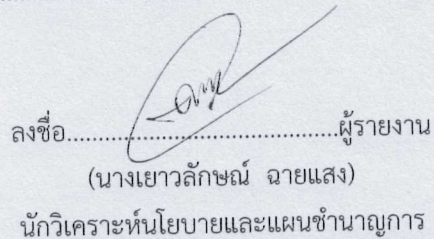 ลงชื่อ......................................ผู้รายงาน
(นางเยาวลักษณ์ ฉายแสง)
นักวิเคราะห์นโยบายและแผนชำนาญการ